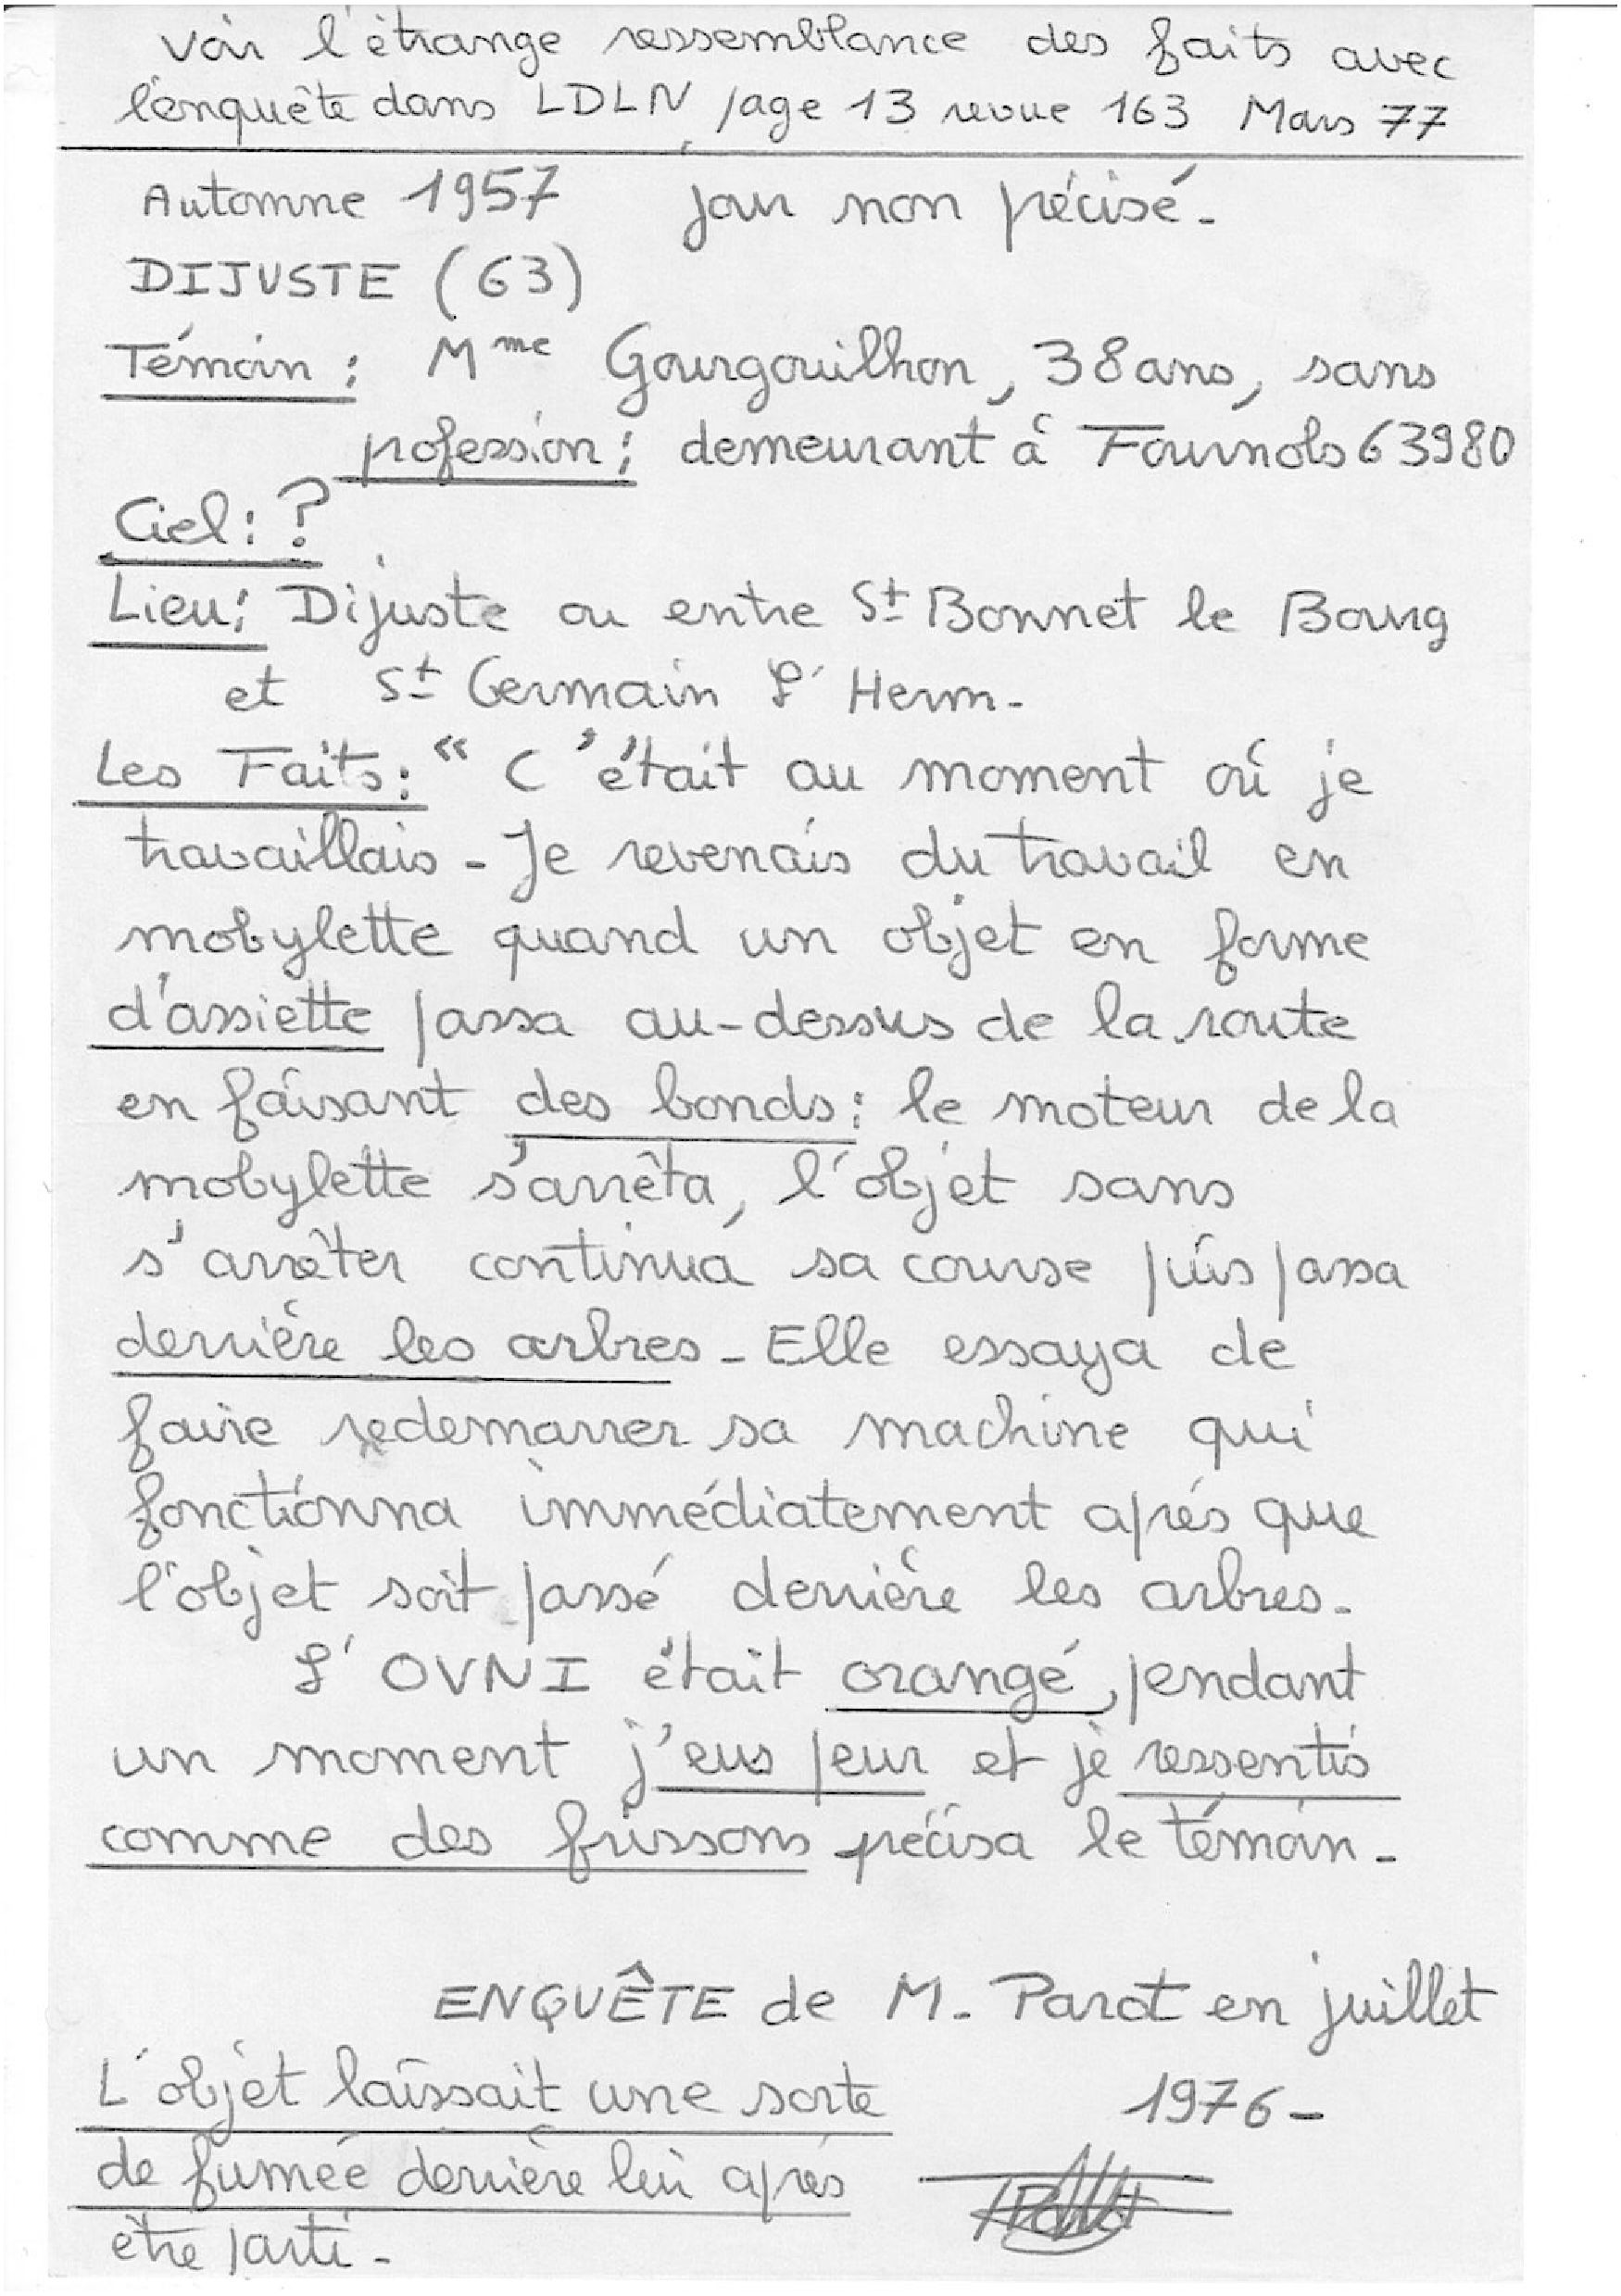 Voir l'étrange ressemblance des faits avec
l'enquête dans LDLN, page 13 revue 163 Mars 77
Automne 1957 jour non précisé-
DIJUSTE (63)
Témoin: Mme Gourgouilhon, 38 ans, sans
profession; demeurant à Fournols 63980
Ciel: ?
Lieu: Dijuste ou entre St Bonnet le Bourg
et St Germain L'Herm-
Les Faits: "C'était au moment où je
travaillais - Je revenais du travail en
mobylette quand un objet en forme
d'assiette passa au-dessus de la route
en faisant des bonds; le moteur de la
mobylette s'arrêta, l'objet sans
s'arrêter continua sa course puis passa
derrière les arbres - Elle essaya de
faire redemarrer sa machine qui
fonctionna immédiatement après que
l'objet soit passé derrière les arbres.
L'OVNI était orangé, pendant
un moment j'eus peur et je ressentis
comme des frissons précisa le témoin-
ENQUÊTE de M. Parot en juillet
1976-
L'objet laissait une sorte
de fumée derrière lui après
être parti-